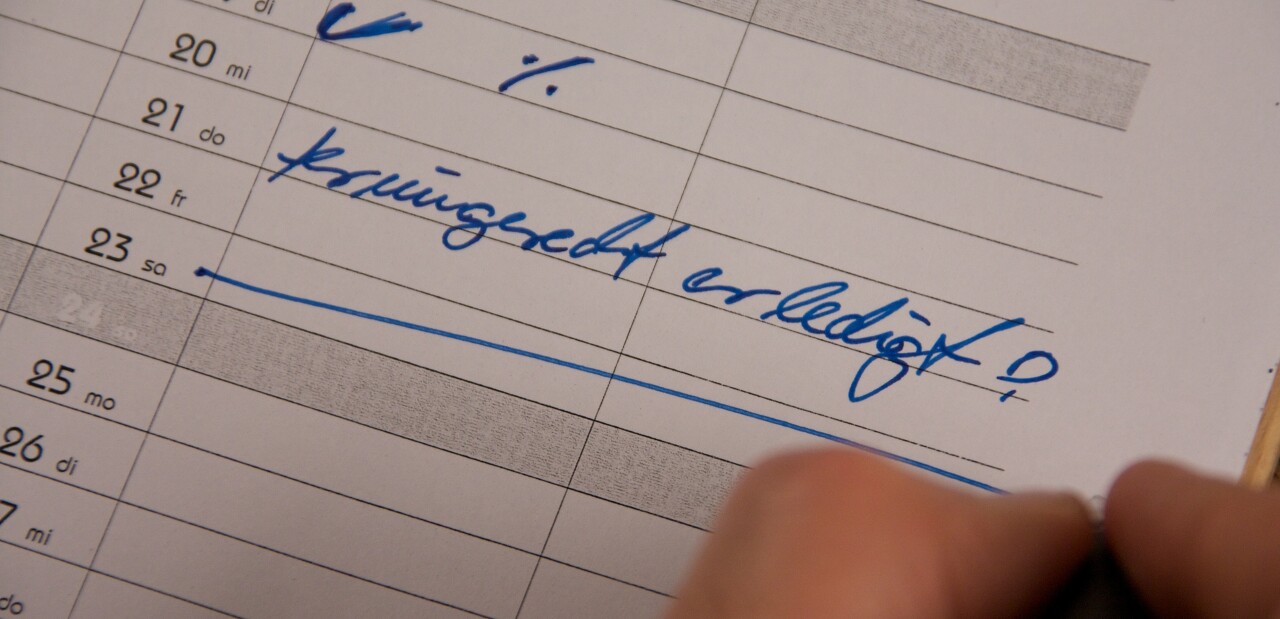 di
20 mi ✓ ./.
21 do
22 fr termingerecht erledigt!
23 sa
24 so
25 mo
26 di
7 mi
do